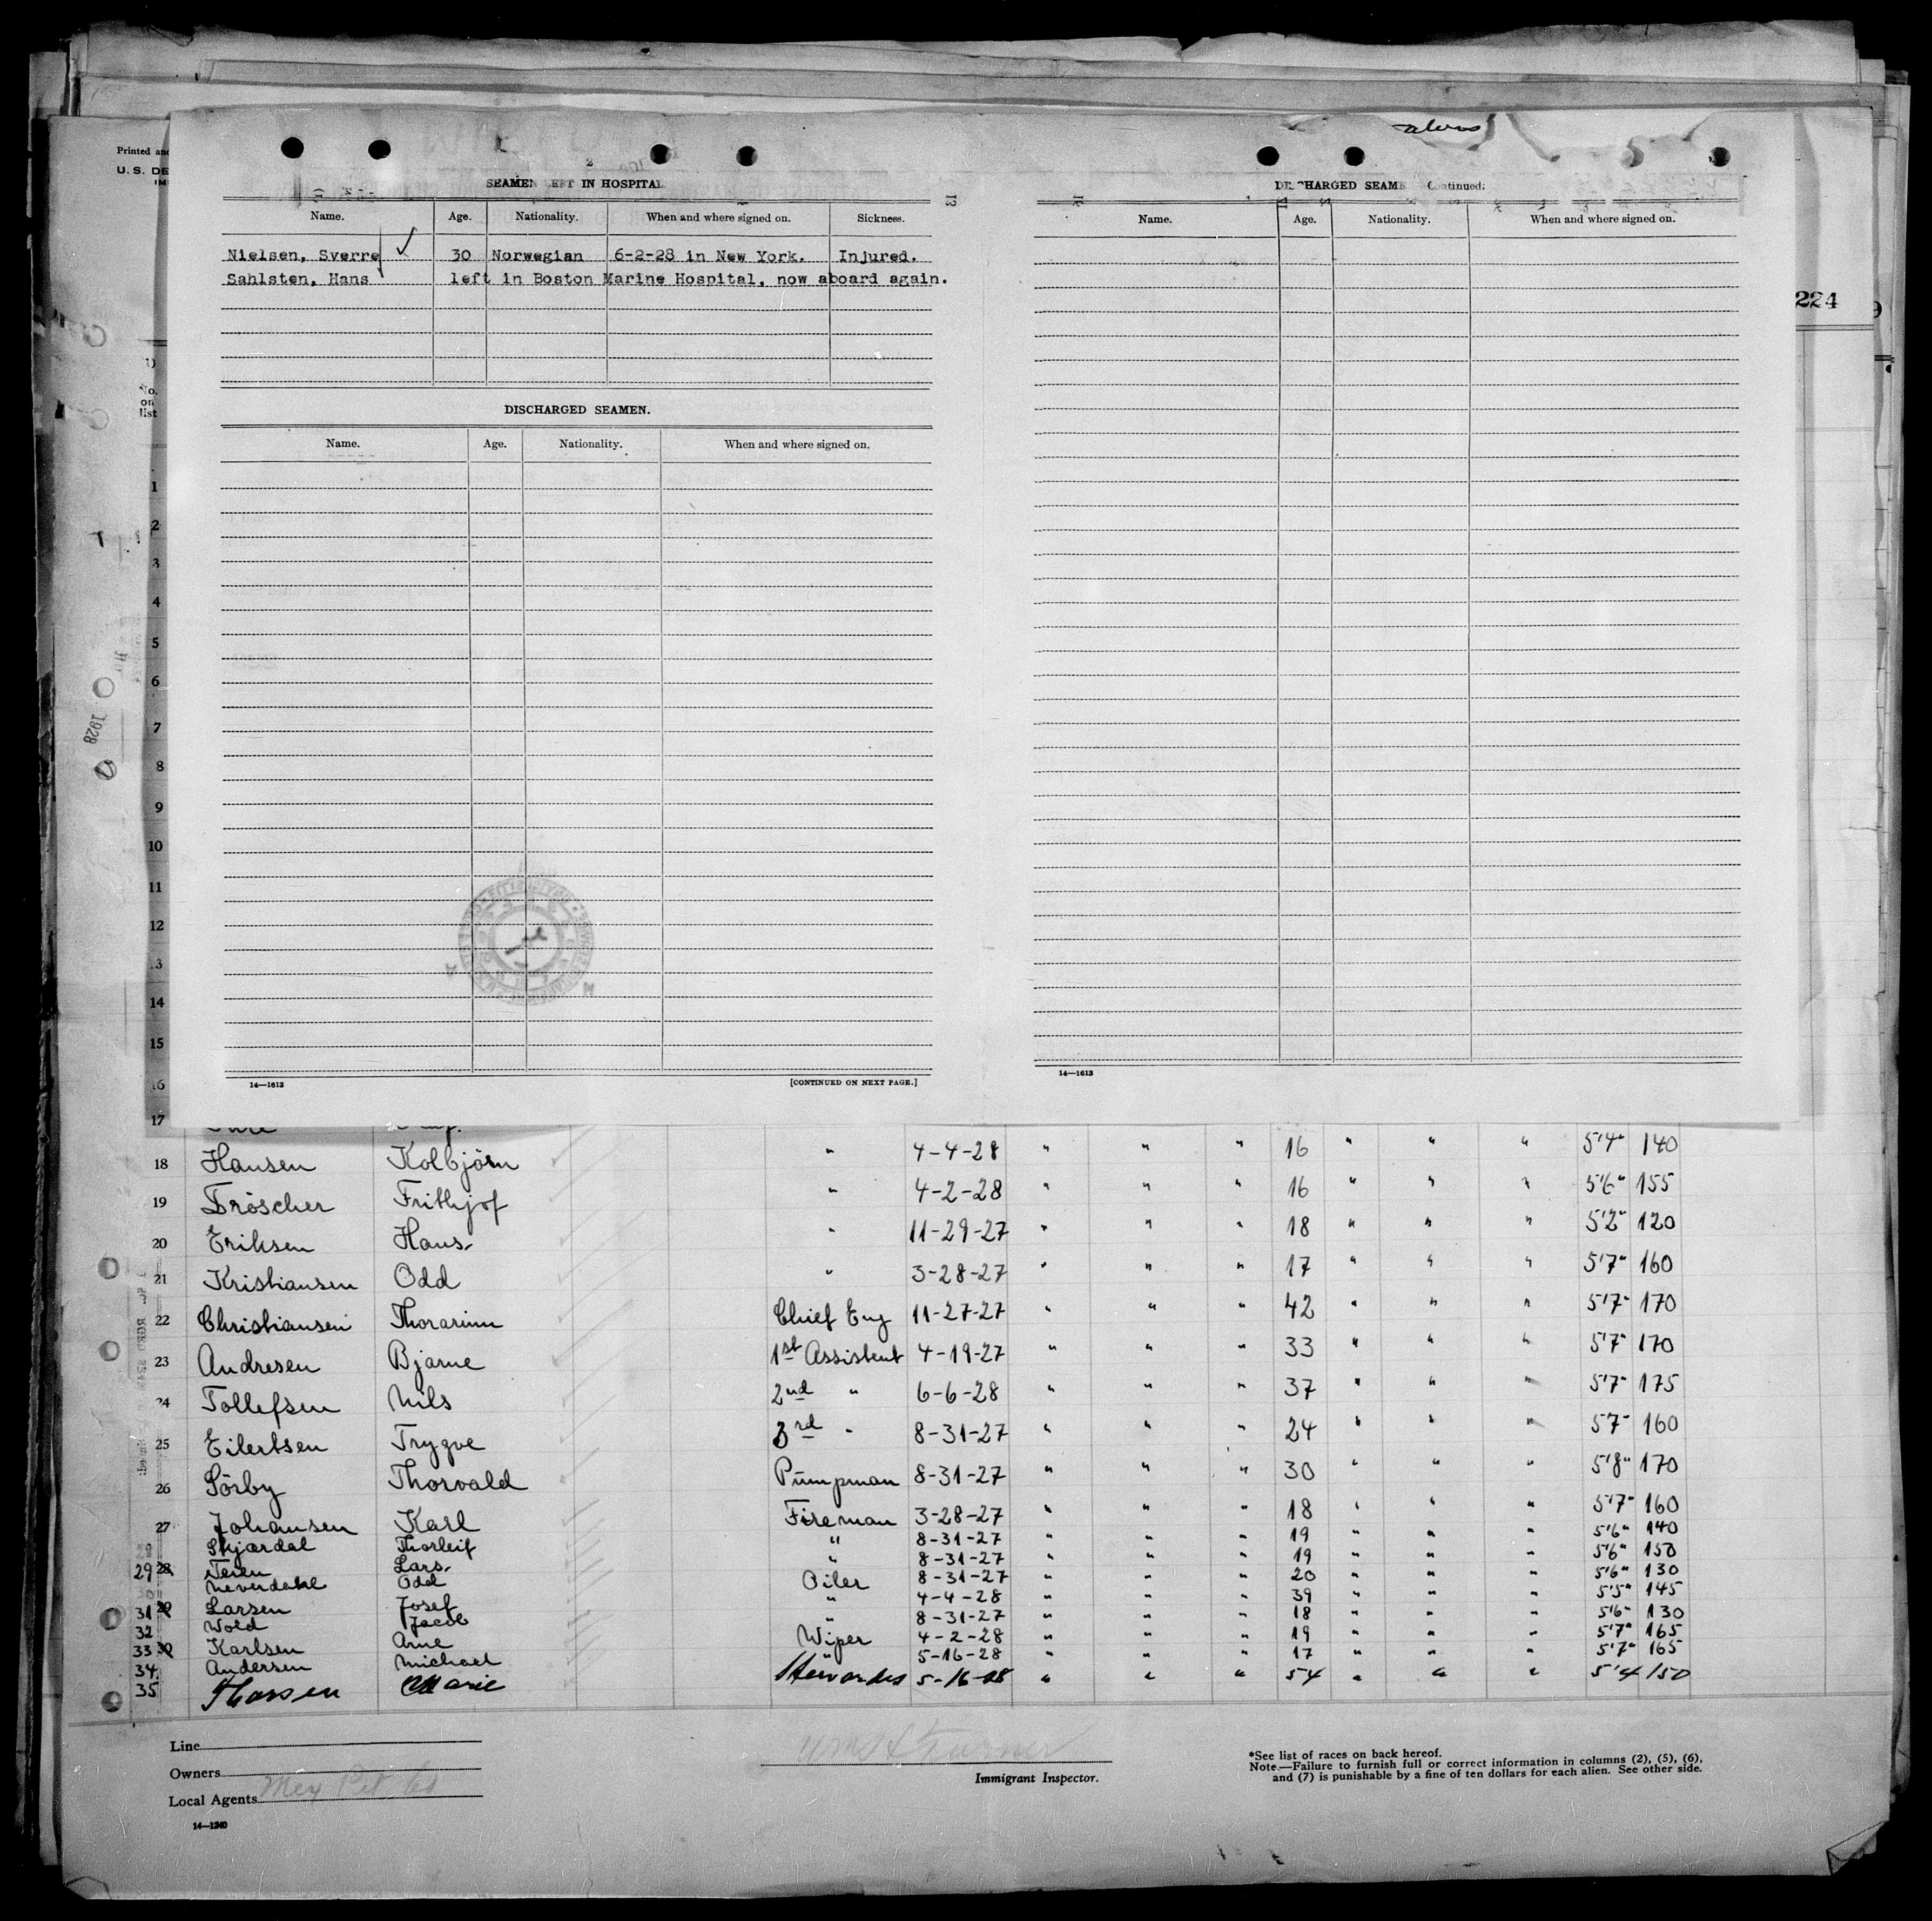 Printed and
U. S. DE
SEAMEN LEFT IN HOSPITAL
Name. Age. Nationality. When and where signed on. Sickness.
Nielsen, Sverre ✓ 30 Norwegian 6-2-28 in New York. Injured.
Sahlsten, Hans left in Boston Marine Hospital, now aboard again.
DISCHARGED SEAMEN.
Name. Age. Nationality. When and where signed on.
14—1613 [CONTINUED ON NEXT PAGE.]
DISCHARGED SEAMEN Continued:
Name. Age. Nationality. When and where signed on.
14—1613
224
No. on list
1
2
3
4
5
6
7
8
9
10
11
12
13
14
15
16
17
1928
18 Hansen Kolbjörn " 4-4-28 " " " 16 " " " 5'4" 140
19 Dröscher Frithjof " 4-2-28 " " " 16 " " " 5'6" 155
20 Eriksen Hans " 11-29-27 " " " 18 " " " 5'2" 120
21 Kristiansen Odd " 3-28-27 " " " 17 " " " 5'7" 160
22 Christiansen Thorarinn Chief Eng 11-27-27 " " " 42 " " " 5'7" 170
23 Andresen Bjarne 1st Assistent 4-19-27 " " " 33 " " " 5'7" 170
24 Tollefsen Nils 2nd " 6-6-28 " " " 37 " " " 5'7" 175
25 Eilertsen Trygve 3rd " 8-31-27 " " " 24 " " " 5'7" 160
26 Sörby Thorvald Pumpman 8-31-27 " " " 30 " " " 5'8" 170
27 Johansen Karl Fireman 3-28-27 " " " 18 " " " 5'7" 160
Skjærdal Thorleif " 8-31-27 " " " 19 " " " 5'6" 140
29 28 Teien Lars " 8-31-27 " " " 19 " " " 5'6" 150
Neverdahl Odd Oiler 8-31-27 " " " 20 " " " 5'6" 130
31 29 Larsen Josef " 4-4-28 " " " 39 " " " 5'5" 145
32 Wold Jacob " 8-31-27 " " " 18 " " " 5'6" 130
33 30 Karlsen Arne Wiper 4-2-28 " " " 19 " " " 5'7" 165
34 Andersen Michael " 5-16-28 " " " 17 " " " 5'7" 165
35 Thorsen Marie Stewardes 5-16-28 " " " 54 " " " 5'4 150
Line
Owners
Local Agents Mex Pet Co
14—1240
Immigrant Inspector.
*See list of races on back hereof.
Note.—Failure to furnish full or correct information in columns (2), (5), (6),
and (7) is punishable by a fine of ten dollars for each alien. See other side.